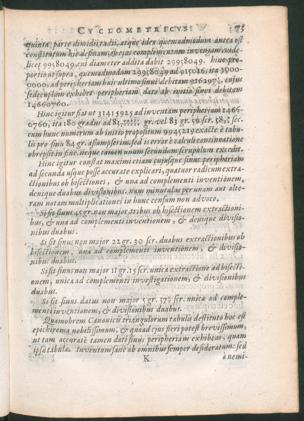 CYCLOMETRICUS. 73
quinta parte dimidij radij, atque ideo quemadmodum antea est
constitutum hic definam,
licet 9918049. cui diameter addita dabit 29918049. hinc pro-
portio assupra, quemadmodum 29918049 ad 915016, ita 3000-
0000, ad peripheriam huic ultimo sinui debitam
sesquecuplum exhibet peripheriam dato ab initio sinui debitam
14660760.
Hinc igitur fiat ut 31415925 ad inventam peripheriam 1466-
0760, ita 180 gradus ad
cum hunc numerum ab initio propositum 9945219 exacte è tabu-
lis pro sinu 84 gr. assumserim, sed is error à calculi continuatione
obrepsit in fine, neque tamen unum secundum scrupulum excedit.
Hinc igitur constat maximi etiam cujusque sinus peripheriam
ad secunda usque posse accurate explicari, quatuor radicum extra-
ctionibus ab bisectionei, & una ad complementi inventionem,
denique duabus divisionibus. nam minutulas per unam aut alte-
ram notam multiplicationes in hunc censum non advoco.
Si sit sinus 45 gr. non major, tribus ob bisectionem extractioni-
bus, & una ad complementi inventionem, & denique divisio-
nibus duabus.
Si sit sinus non major 22 gr. 30 scr. duabus extractionibus ob
bisectionem, una ad complementi inventionem, & divisio-
nibus duabus.
Si sit sinus non major 11 gr. 15 scr. unica extractione ad bisecti-
onem, unica ad complementi investigationem, & divisionibus
duabus.
Si sit sinus datus non major 5 gr. 37½ scr. unica ad comple-
menti inventionem, & divisionibus duabus.
Quamobrem Canonicis triangulorum tabulis destituto hoc est
epichirema nobilissimum, & quoad ejus fieri potest brevissimum,
ut tam accurate tamen dati sinus peripheriam exhibeat, quam
ipsa tabula. Inventum sane ab omnibus semper desideratum: sed
K a nemi-